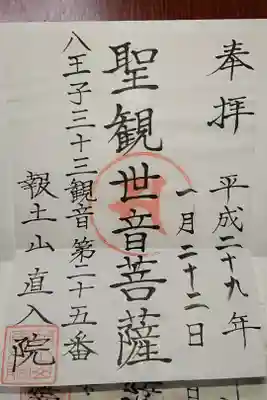 奉拝 平成二十九年
一月二十二日
聖観世音菩薩
八王子三十三観音第二十五番
報土山直入院